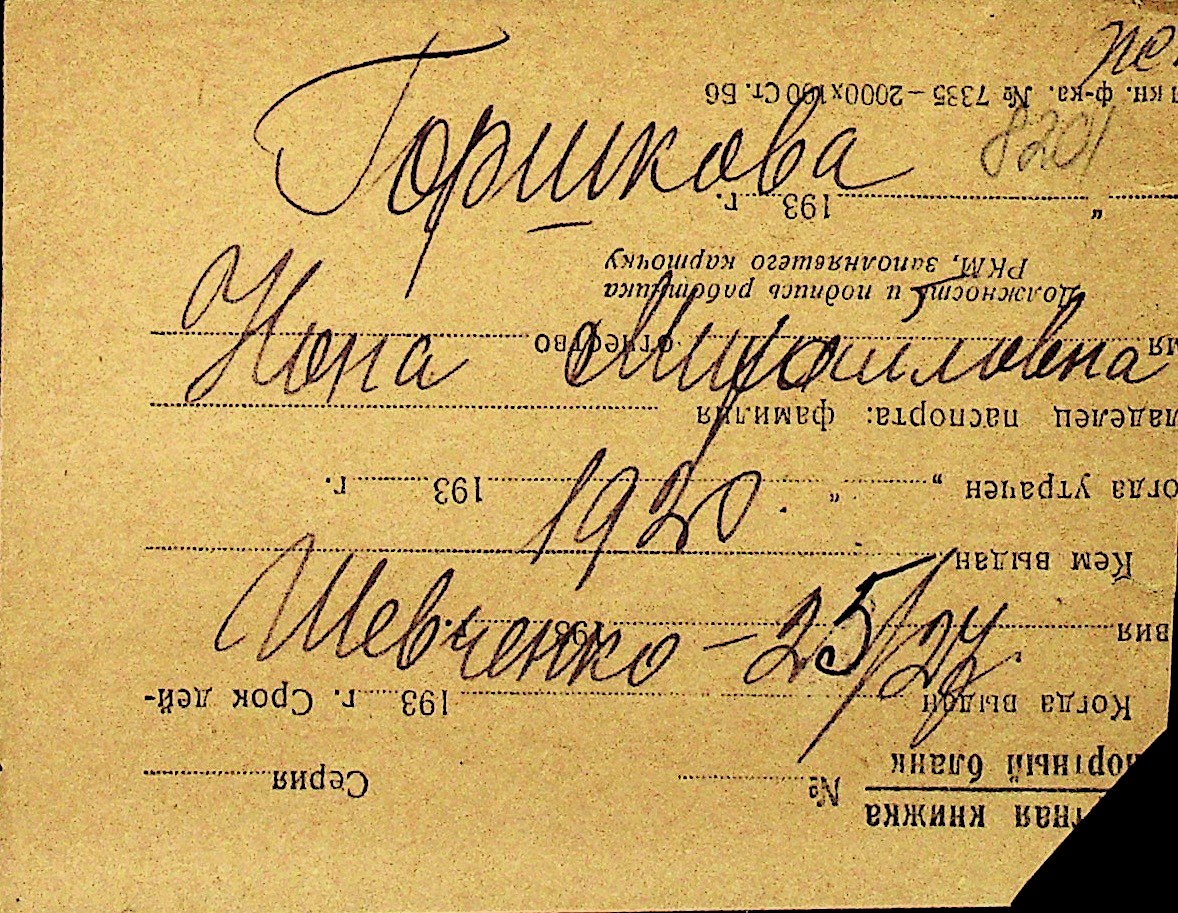 Горшкова
8201
Нона Михайловна
1920.
Шевченко – 25/24
тная книжка
портный бланк
№ Серия
Когда выдан 193 г. Срок дей-
вия 193 г.
Кем выдан
огда утрачен „ “ 193 г.
ладелец паспорта: фамилия
мя отчество
Должность и подпись работника
РКМ, заполнявшего карточку
„ 193 г.
кн. ф-ка. № 7335 – 2000х100 Ст. Б6